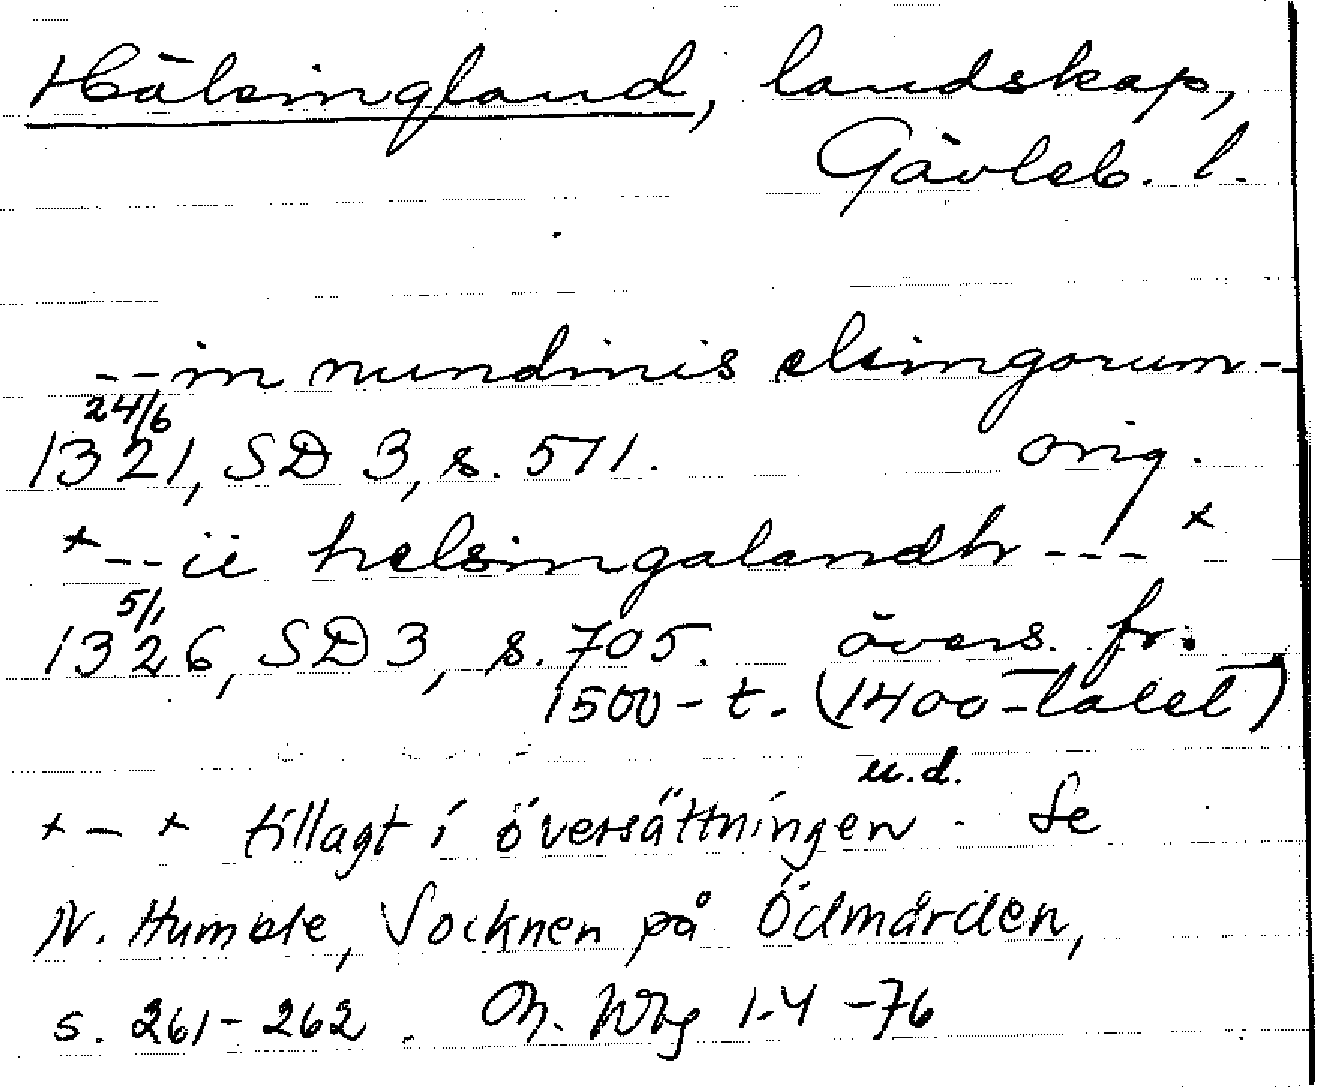 Hälsingland, landskap,
Gävleb. l.
--in nundinis elsingorum--
24/6
1321, SD 3, s. 511. orig.
+--ii helsingalandh---+
5/1
1326, SD 3, s. 705. övers. fr.
1500-t. (1400-talet)
u.d.
+ - + tillagt i översättningen. Se
N. Humble, Socknen på Ödmården,
s. 261-262. M. Wbg 1-4-76